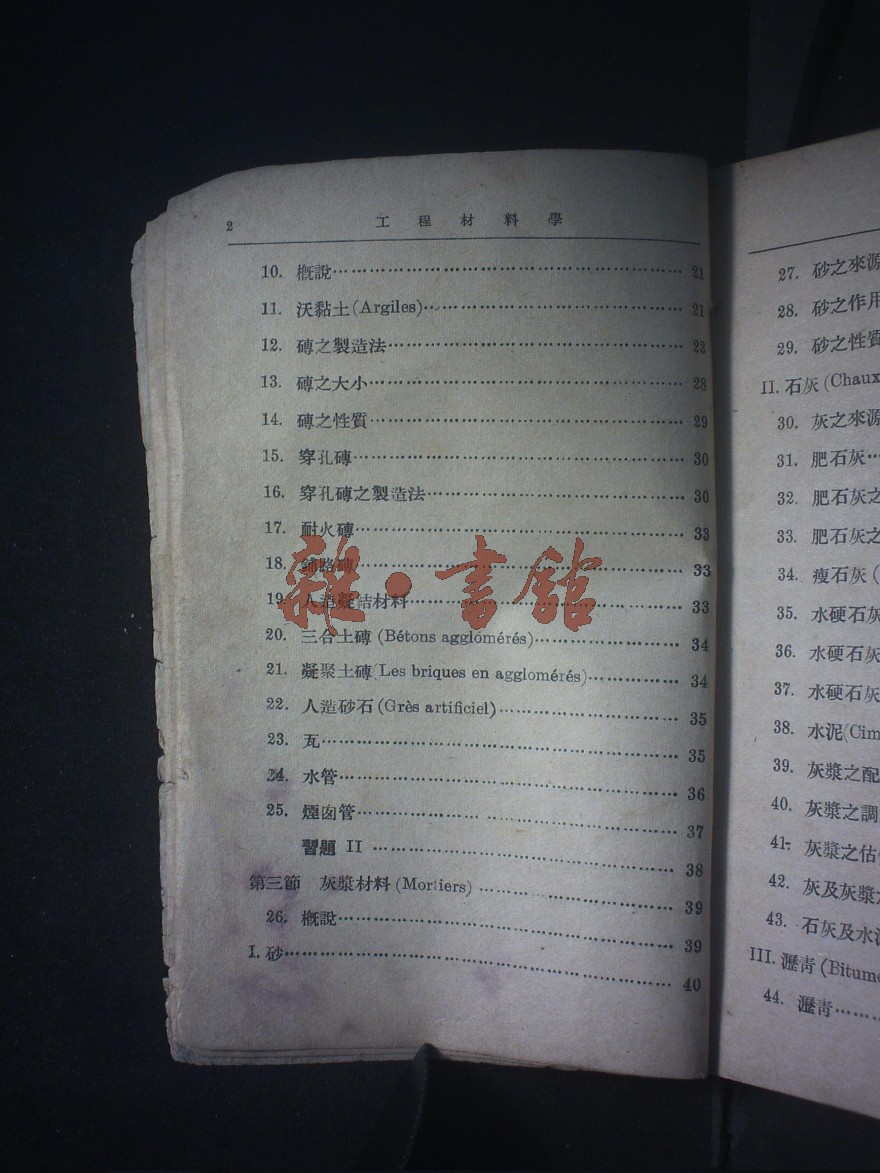 2 工程材料學
10. 概說 21
11. 沃黏土(Argiles) 21
12. 磚之製造法 22
13. 磚之大小 28
14. 磚之性質 29
15. 穿孔磚 30
16. 穿孔磚之製造法 30
17. 耐火磚 33
18. 鋪路磚 33
19. 人造凝結材料 33
20. 三合土磚 (Bétons agglomérés) 34
21. 凝聚土磚(Les briques en agglomérés) 34
22. 人造砂石(Grès artificiel) 35
23. 瓦 35
24. 水管 36
25. 煙囱管 37
習題 II 38
第三節 灰漿材料(Mortiers) 39
26. 概說 39
I. 砂 40
雜·書館
27. 砂之來源
28. 砂之作用
29. 砂之性質
II. 石灰(Chaux
30. 灰之來源
31. 肥石灰
32. 肥石灰之
33. 肥石灰之
34. 瘦石灰(
35. 水硬石灰
36. 水硬石灰
37. 水硬石灰
38. 水泥(Cim
39. 灰漿之配
40. 灰漿之調
41. 灰漿之估
42. 灰及灰漿
43. 石灰及水泥
III. 瀝青(Bitume
44. 瀝青